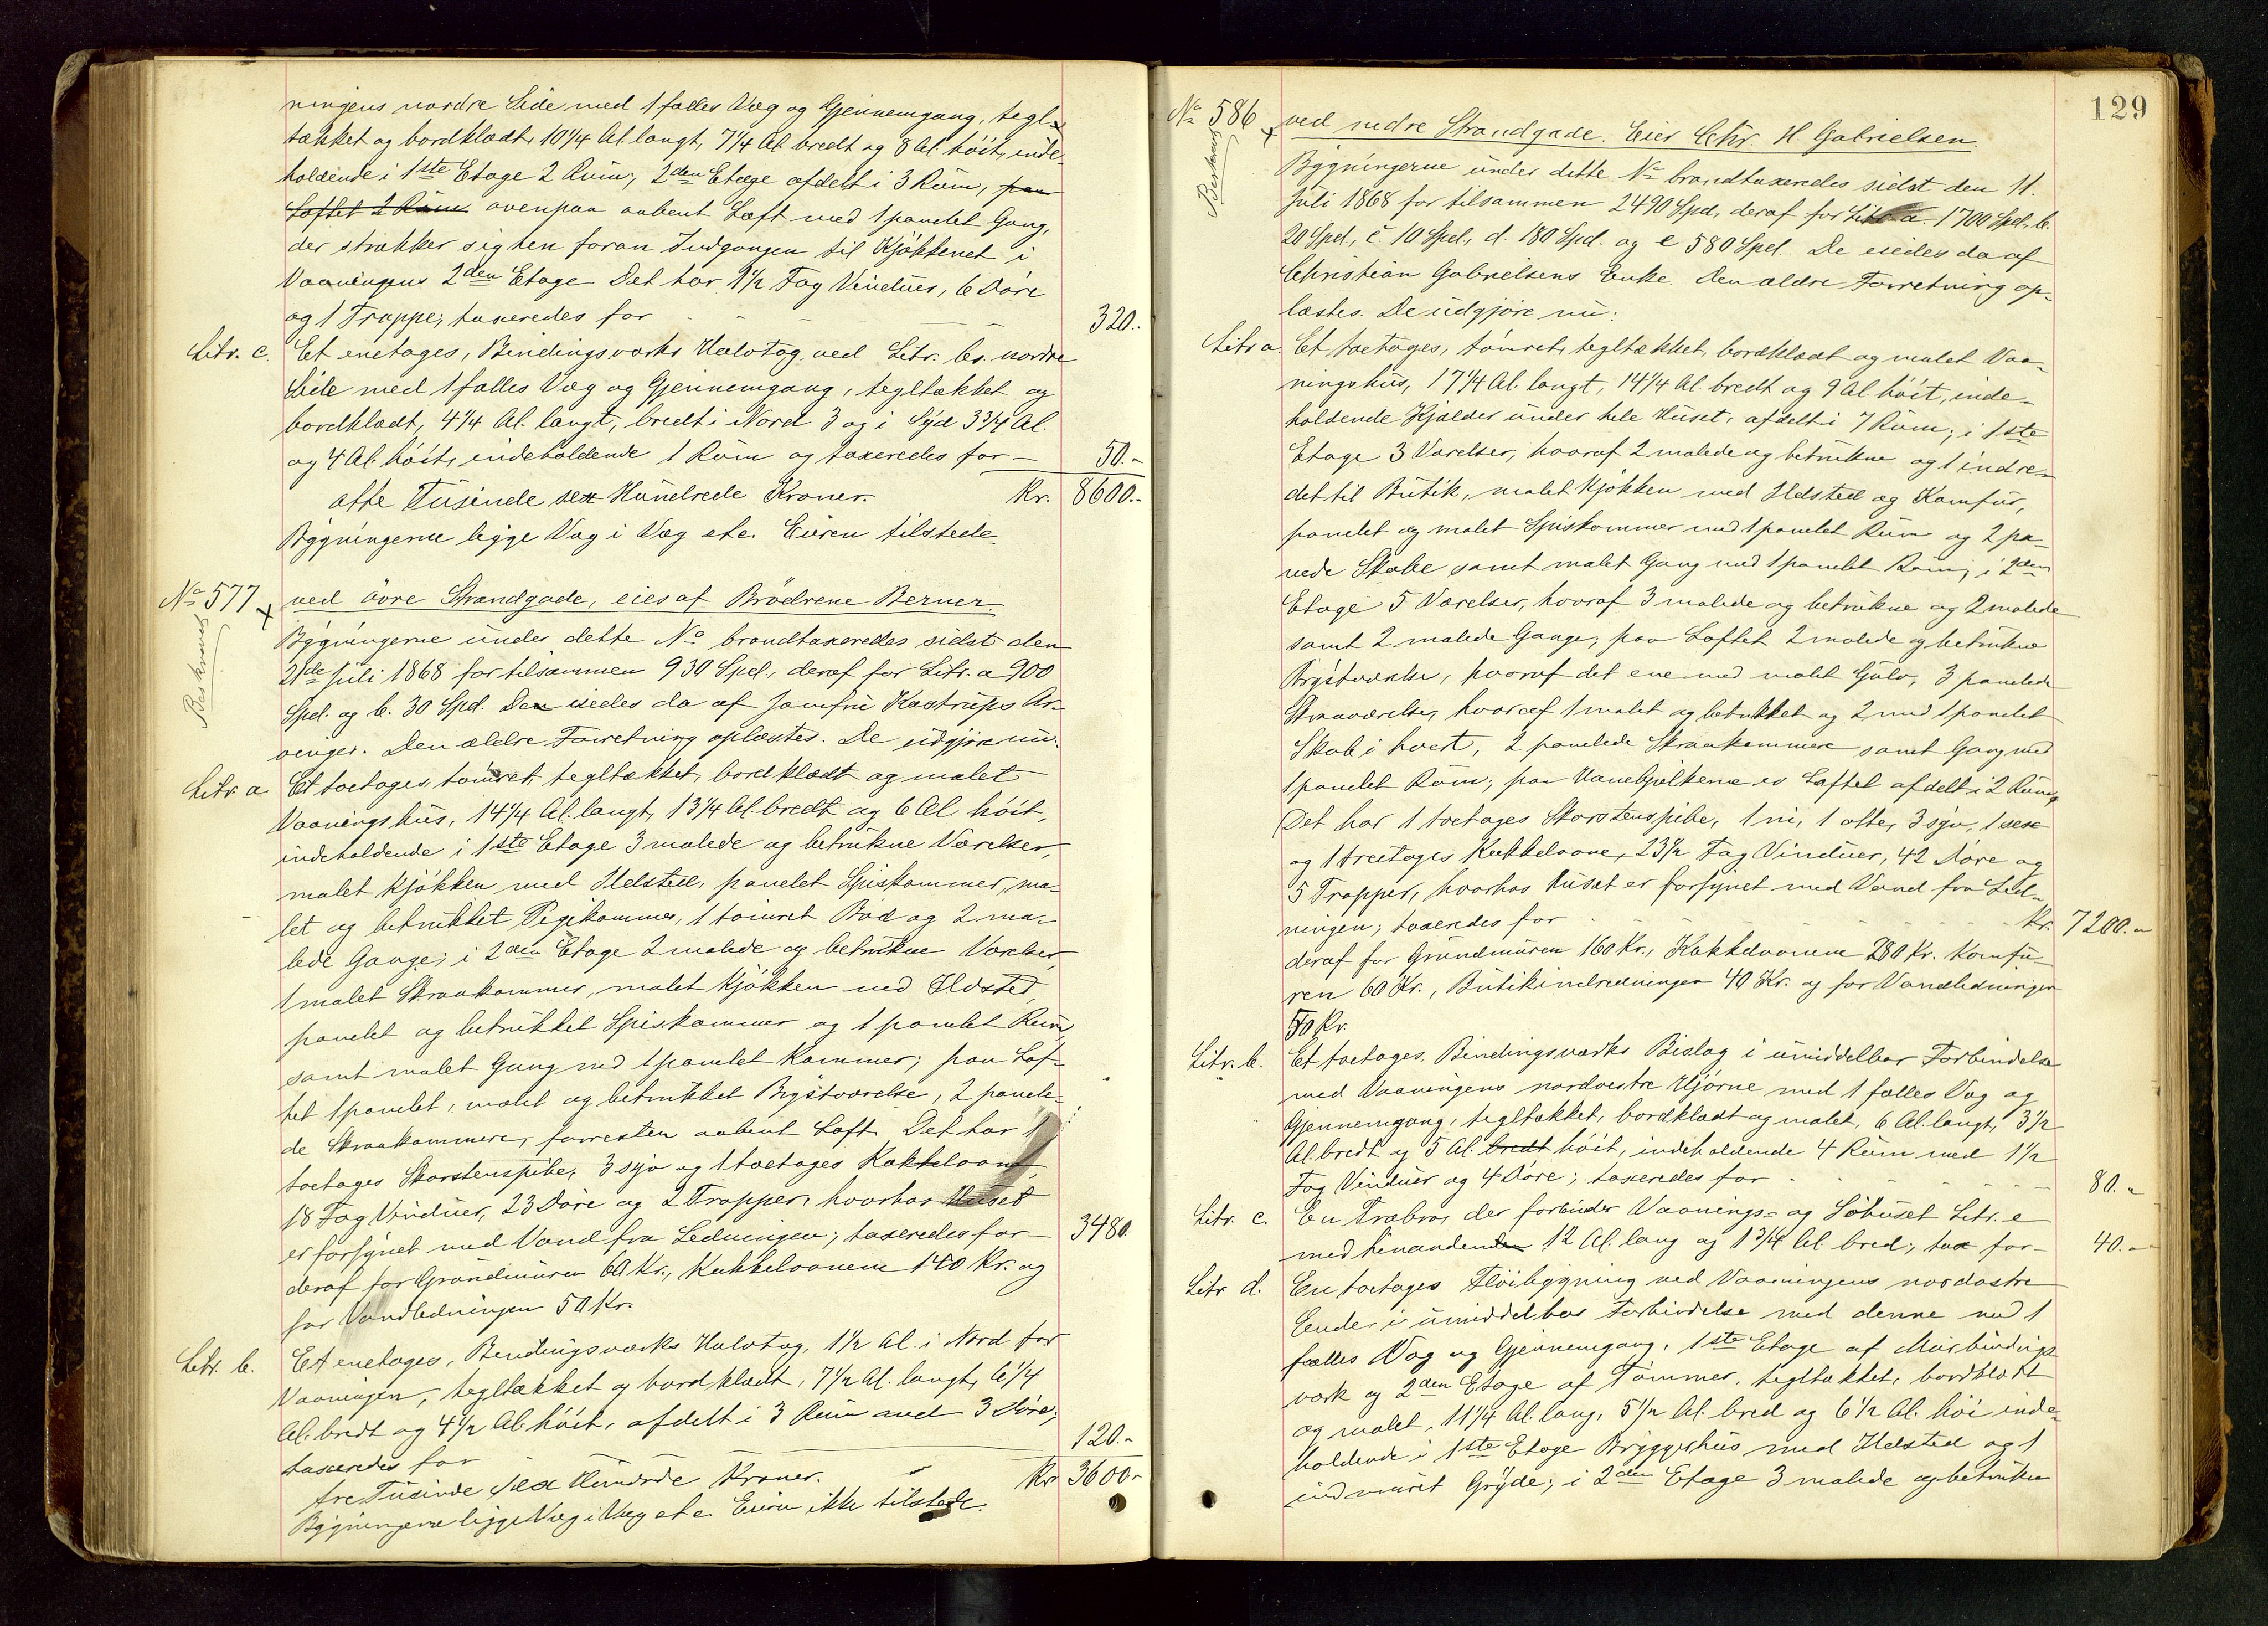 ningens nordre Side med 1 fælles Væg og Gjennemgang, tegl-
tækket og bordklædt, 10 1/4 Al. langt, 7 1/4 Al. bredt og 8 Al. höit, inde-
holdende i 1ste Etage 2 Rum, 2den Etage afdelt i 3 Rum, paa
Loftet 2 Rum ovenpaa aabent Loft med 1 panelet Gang,
der strækker sig hen foran Indgangen til Kjökkenet i
Vaaningens 2den Etage Det har 1 1/2 Fag Vinduer, 6 Döre
og 1 Trappe; taxeredes for 320.-
Litr. c. Et enetages, Bindingsværks Halvtag ved Litr. b.s nordre
Side med 1 fælles Væg og Gjennemgang, tegltækket og
bordklædt, 4 1/4 Al. langt, bredt i Nord 3 og i Syd 3 3/4 Al.
og 4 Al. höit, indeholdende 1 Rum og taxeredes for 50.-
otte Tusinde sex Hundrede Kroner. Kr. 8600.-
Bygningerne ligge Væg i Væg etc. Eieren tilstede.
No 577 ved övre Strandgade, eies af Brödrene Berner.
Beskrevet
Bygningerne under dette No brandtaxeredes sidst den
21de Juli 1868 for tilsammen 930 Spd., deraf for Litr. a 900
Spd. og b. 30 Spd. De eiedes da af Jomfru Kastrups Ar-
vinger. Den ældre Forretning oplæstes. De udgjöre nu:
Litr. a Et toetages, tömret, tegltækket, bordklædt og malet
Vaaningshus, 14 1/4 Al. langt, 13 1/4 Al. bredt og 6 Al. höit,
indeholdende i 1ste Etage 3 malede og betrukne Værelser,
malet Kjökken med Ildsted, panelet Spiskammer, ma-
let og betrukket Pigekammer, 1 tömret Bod og 2 ma-
lede Gange; i 2den Etage 2 malede og betrukne Værelser,
1 malet Skraakammer, malet Kjökken med Ildsted,
panelet og betrukket Spiskammer og 1 panelet Rum
samt malet Gang med 1 panelet Kammer; paa Lof-
tet 1 panelet, malet og betrukket Brystværelse, 2 panele-
de Skraakammere, forresten aabent Loft. Det har 1
toetages Skorstenspibe, 3 syv og 1 toetages Kakkelovne,
18 Fag Vinduer, 23 Döre og 2 Trapper, hvorhos Huset
er forsynet med Vand fra Ledningen; taxeredes for 3480
deraf for Grundmuren 60 Kr., Kakkelovnene 140 Kr. og
for Vandledningen 50 Kr.
Litr. b. Et enetages, Bindingsværks Halvtag, 1 1/2 Al. i Nord for
Vaaningen, tegltækket og bordklædt, 7 1/2 Al. langt, 6 1/4
Al. bredt og 4 1/2 Al. höit, afdelt i 3 Rum med 3 Döre;
taxeredes for 120.-
tre Tusinde sex Hundrede Kroner. Kr 3600.-
Bygningerne ligge Væg i Væg etc. Eieren ikke tilstede.
129
No 586 ved nedre Strandgade. Eier Chr. H. Gabrielsen.
Beskrevet
Bygningerne under dette No brandtaxeredes sidst den 11.
Juli 1868 for tilsammen 2490 Spd, deraf for Litr. a 1700 Spd, b.
20 Spd., c. 10 Spd., d. 180 Spd. og e 580 Spd. De eiedes da af
Christian Gabrielsens Enke. Den ældre Forretning op-
læstes. De udgjöre nu:
Litr a. Et toetages, tömret, tegltækket, bordklædt og malet Vaa-
ningshus, 17 1/4 Al. langt, 14 1/4 Al. bredt og 9 Al. höit, inde-
holdende Kjælder under hele Huset, afdelt i 7 Rum; i 1ste
Etage 3 Værelser, hvoraf 2 malede og betrukne og 1 indre-
det til Butik, malet Kjökken med Ildsted og Komfur,
panelet og malet Spiskammer med 1 panelet Rum og 2 pa-
nede Skabe samt malet Gang med 1 panelet Rum; i 2den
Etage 5 Værelser, hvoraf 3 malede og betrukne og 2 malede
samt 2 malede Gange; paa Loftet 2 malede og betrukne
Brystværelse, hvoraf det ene med malet Gulv, 3 panelede
Skraaværelser, hvoraf 1 malet og betrukket og 2 med 1 panelet
Skab i hvert, 2 panelede Skraakammere samt Gang med
1 panelet Rum; paa Hanebjelkerne er Loftet afdelt i 2 Rum,
Det har 1 toetages Skorstenspibe, 1 ni, 1 otte, 3 syv, 1 sex
og 1 treetages Kakkelovne, 23 1/2 Fag Vinduer, 42 Döre og
5 Trapper, hvorhos Huset er forsynet med Vand fra Led-
ningen; taxeredes for Kr. 7200.-
deraf for Grundmuren 160 Kr., Kakkelovnene 280 Kr. Komfu-
ren 60 Kr., Butikindredningen 40 Kr. og for Vandledningen
50 Kr.
Litr. b. Et toetages Bindingsværks Bislag i umiddelbar Forbindelse
med Vaaningens nordvestre Hjörne med 1 fælles Væg og
Gjennemgang, tegltækket, bordklædt og malet, 6 Al. langt, 3 1/2
Al. bredt og 5 Al. bredt höit, indeholdende 4 Rum med 1 1/2
Fag Vinduer og 4 Döre; taxeredes for 80.-
Litr. c. En Træbro, der forbinder Vaanings- og Söhuset Litr. e
med hinanden 12 Al. lang og 1 3/4 Al. bred; tax for 40.-
Litr d. En toetages Flöibygning ved Vaaningens nordöstre
Ende i umiddelbar Forbindelse med denne med 1
fælles Væg og Gjennemgang, 1ste Etage af Murbindings-
værk og 2den Etage af Tömmer, tegltækket, bordklædt
og malet, 11 1/4 Al. lang, 5 1/2 Al. bred og 6 1/2 Al. höi inde-
holdende i 1ste Etage Bryggerhus med Ildsted og 1
indmuret Gryde; i 2den Etage 3 malede og betrukne